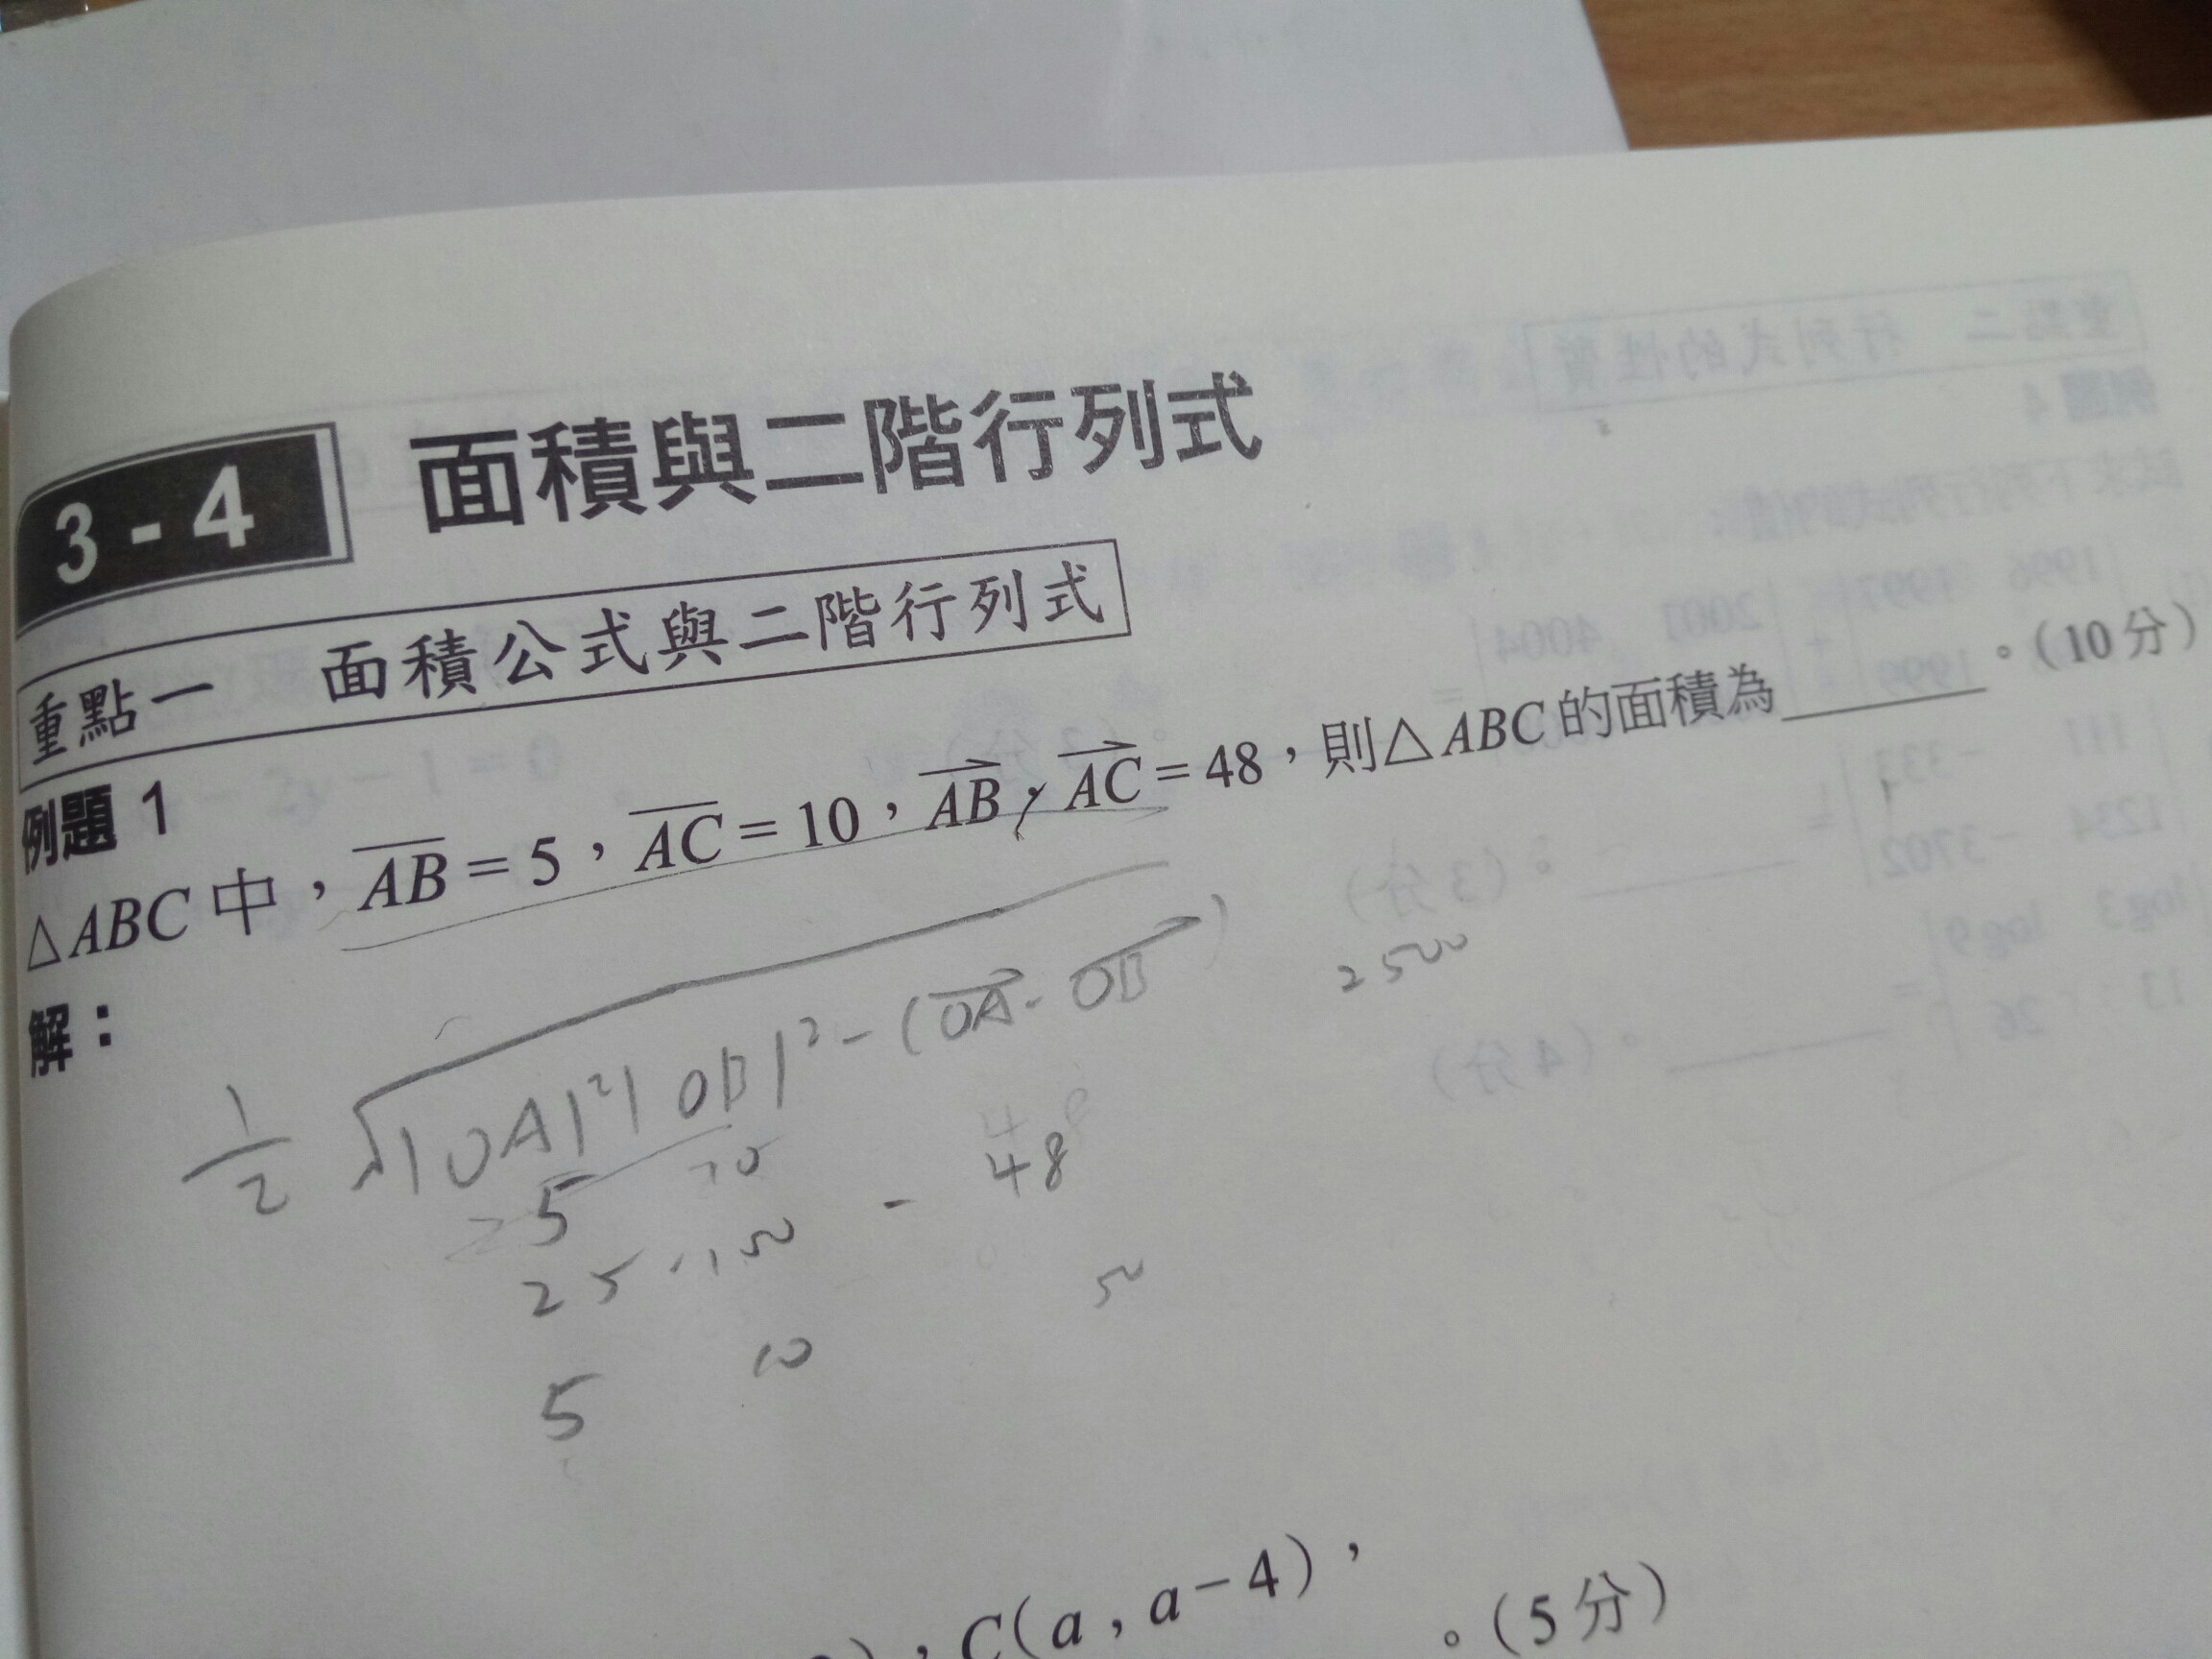 3-4 面積與二階行列式
重點一 面積公式與二階行列式
例題 1
△ABC 中，AB = 5，AC = 10，AB · AC = 48，則△ABC 的面積為______。(10 分)
解：
1/2 √|OA|²|OB|² - (OA · OB)
2500
5 10 - 48
25 · 100
50
5 10
，C(a , a-4)，
。(5 分)